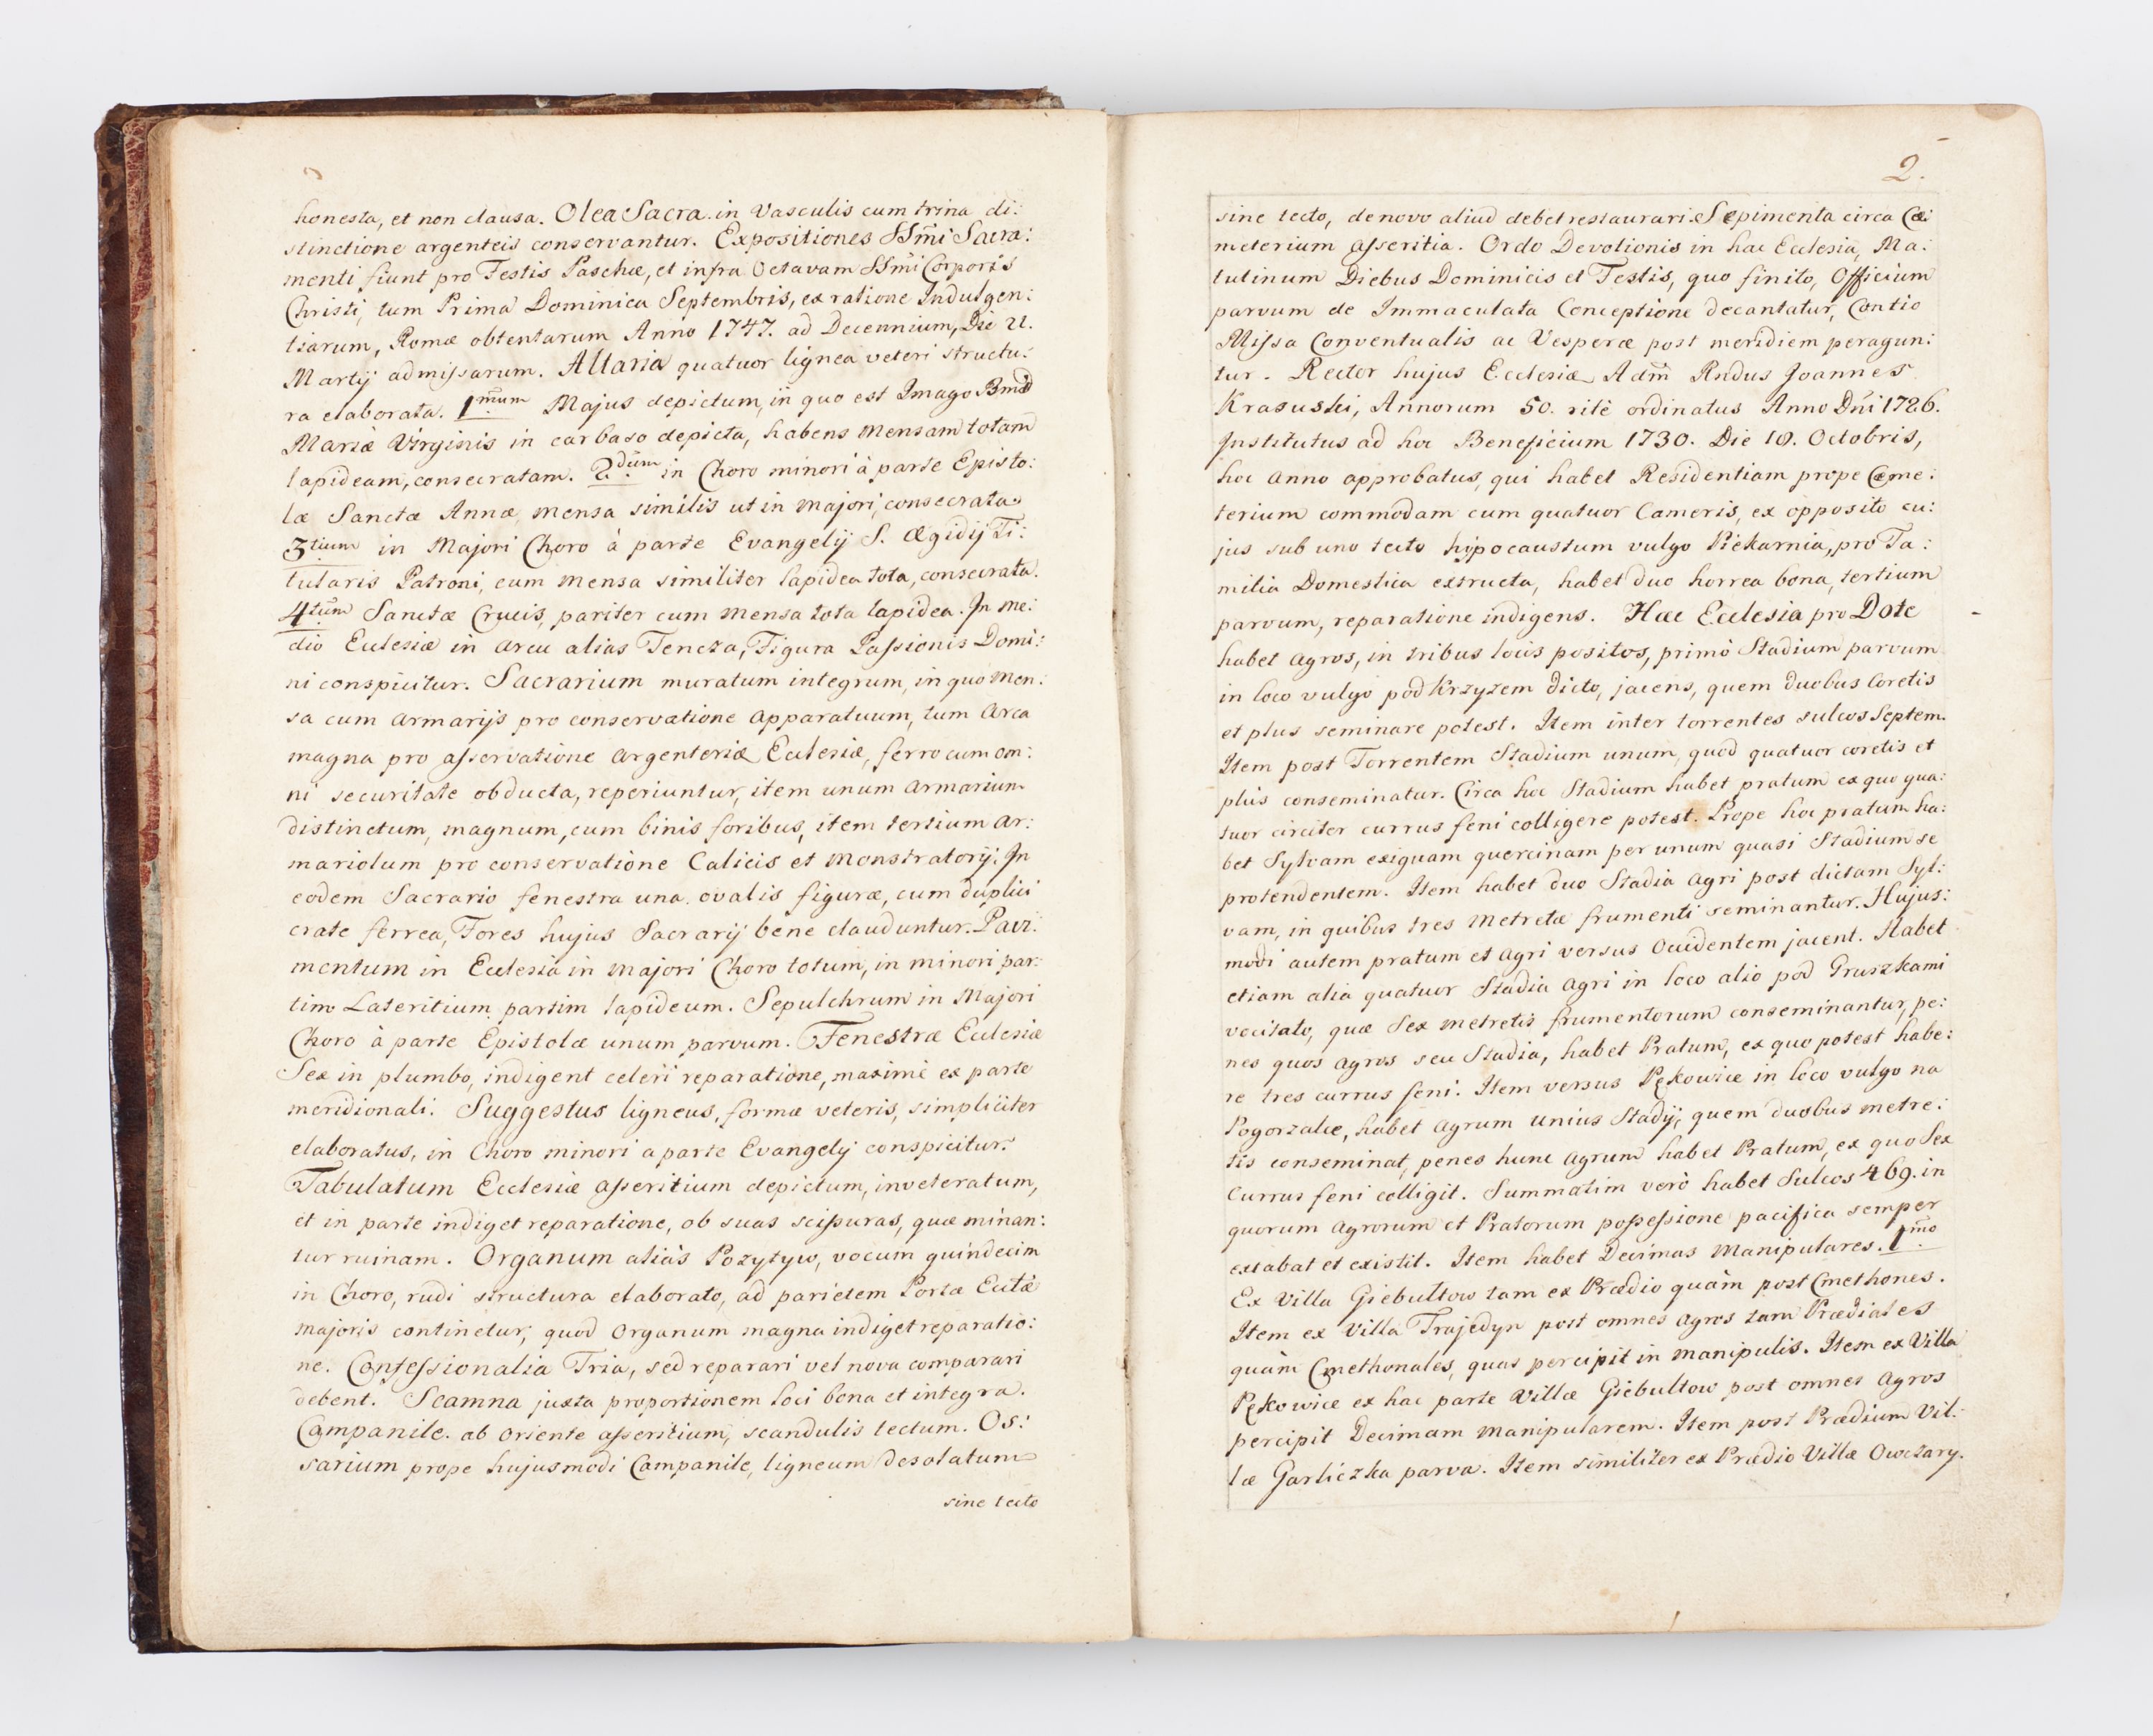 honesta, et non clausa. Olea Sacra in Vasculis cum trina di:
stinctione argenteis conservantur. Expositiones SSm̃i Sacra:
menti fiunt pro Festis Paschæ, et infra Octavam SSm̃i Corporis
Christi, tum Prima Dominica Septembris, ex ratione Indulgen:
tiarum, Romæ obtentarum Anno 1747. ad Decennium, Die 21.
Martij admissarum. Altaria quatuor lignea veteri structu:
ra elaborata. 1mũm Majus depictum, in quo est Imago Bmæ
Mariæ Virginis in carbaso depicta, habens mensam totam
lapideam, consecratam. 2.dũm in Choro minori à parte Episto:
læ Sanctæ Annæ, mensa similis ut in majori, consecrata.
3tium in Majori Choro à parte Evangelij S. Ægidij Ti:
tularis Patroni, cum mensa similiter lapidea tota, consecrata.
4tũm Sanctæ Crucis, pariter cum mensa tota lapidea. In me:
dio Ecclesiæ in arcu alias Tencza, Figura Passionis Domi:
ni conspicitur. Sacrarium muratum integrum, in quo men:
sa cum armarijs pro conservatione apparatuum, tum arca
magna pro asservatione argenteriæ Ecclesiæ, ferro cum om:
ni securitate obducta, reperiuntur, item unum armarium
distinctum, magnum, cum binis foribus, item tertium ar:
mariolum pro conservatione Calicis et monstratorij. In
eodem Sacrario fenestra una ovalis figuræ, cum duplici
crate ferrea, Fores hujus Sacrarij bene clauduntur. Pavi:
mentum in Ecclesia in majori Choro totum, in minori par:
tim Lateritium partim lapideum. Sepulchrum in Majori
Choro à parte Epistolæ unum parvum. Fenestræ Ecclesiæ
Sex in plumbo, indigent celeri reparatione, maximè ex parte
meridionali. Suggestus ligneus, formæ veteris, simpliciter
elaboratus, in Choro minori a parte Evangelij conspicitur.
Tabulatum Ecclesiæ asseritium depictum, inveteratum,
et in parte indiget reparatione, ob suas scissuras, quæ minan:
tur ruinam. Organum aliàs Pozytyw, vocum quindecim
in Choro, rudi structura elaborato, ad parietem Portæ Ecclæ
majoris continetur, quod organum magna indiget reparatio:
ne. Confessionalia Tria, sed reparari vel nova comparari
debent. Scamna juxta proportionem loci bona et integra.
Campanile ab oriente asseritium, scandulis tectum. Os:
sarium prope hujusmodi Campanile, ligneum desolatum
sine tecto
2.
sine tecto, denovo aliud debet restaurari. Sepimenta circa Cæ:
meterium asseritia. Ordo Devotionis in hac Ecclesia, Ma:
tutinum Diebus Dominicis et Festis, quo finito, Officium
parvum de Immaculata Conceptione decantatur, Contio
Missa Conventualis ac Vesperæ post meridiem peragun:
tur. Rector hujus Ecclesiæ Adm̃ Rndus Joannes
Krasuski, Annorum 50. ritè ordinatus Anno Dñi 1726.
Institutus ad hoc Beneficium 1730. Die 18. Octobris,
hoc anno approbatus, qui habet Residentiam prope Cæme:
terium commodam cum quatuor Cameris, ex opposito cu:
jus sub uno tecto hipocaustum vulgo Piekarnia, pro Fa:
milia Domestica extructa, habet duo horrea bona, tertium
parvum, reparatione indigens. Hæc Ecclesia pro Dote
habet agros, in tribus locis positos, primò Stadium parvum
in loco vulgo pod Krzyzem dicto, jacens, quem duobus Coretis
et plus seminare potest. Item inter torrentes sulcos Septem.
Item post Torrentem Stadium unum, quod quatuor coretis et
plùs conseminatur. Circa hoc Stadium habet pratum ex quo qua:
tuor circiter currus feni colligere potest. Prope hoc pratum ha:
bet Sylvam exiguam quercinam per unum quasi Stadium se
protendentem. Item habet duo Stadia agri post dictam Syl:
vam, in quibus tres metretæ frumenti seminantur. Hujus:
modi autem pratum et agri versus occidentem jacent. Habet
etiam alia quatuor Stadia agri in loco alio pod Gruszkami
vocitato, quæ Sex metretis frumentorum conseminantur, pe:
nes quos agros seu Stadia, habet Pratum, ex quo potest habe:
re tres currus feni. Item versus Pękowice in loco vulgo na
Pogorzalce, habet agrum unius Stadij, quem duobus metre:
tis conseminat, penes hunc agrum habet Pratum, ex quo Sex
Currus feni colligit. Summatim verò habet Sulcos 469. in
quorum agrorum et Pratorum possessione pacifica semper
extabat et existit. Item habet Decimas manipulares. 1mõ
Ex Villa Giebultow tam ex Prædio quàm post Cmethones.
Item ex Villa Trojedyn post omnes agros tam Prædiales
quàm Cmethonales, quas percipit in manipulis. Item ex Villa
Pękowice ex hac parte Villæ Giebultow post omnes agros
percipit Decimam manipularem. Item post Prædium Vil:
læ Garliczka parva. Item similiter ex Prædio Villæ Owczary.